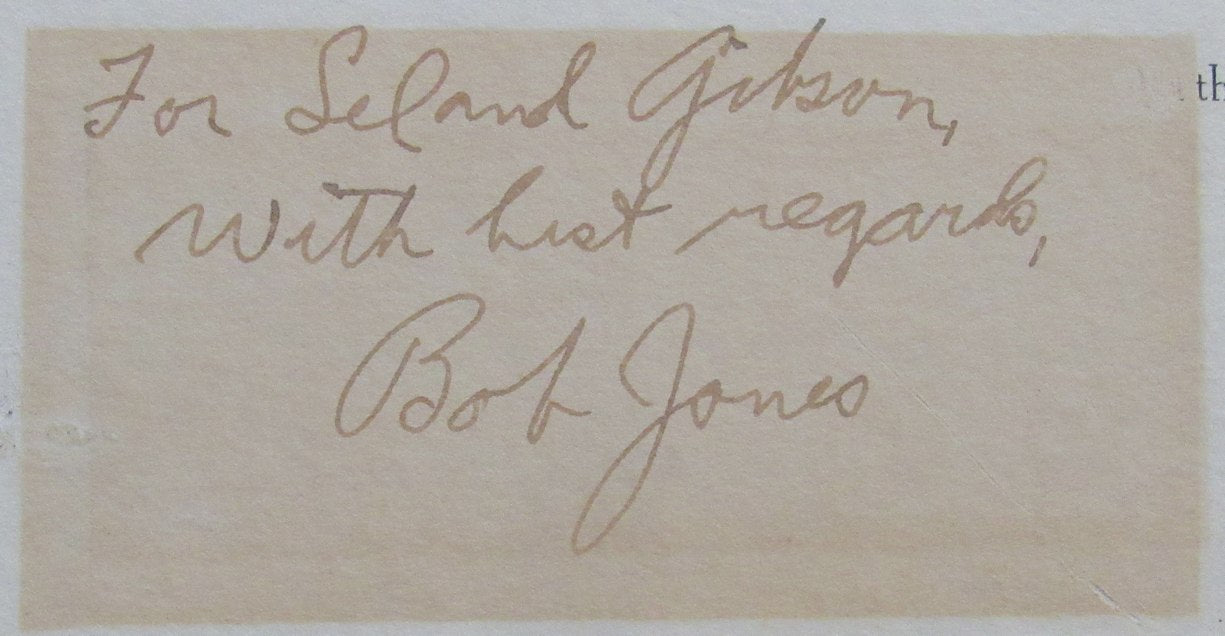 For Leland Gibson,
With best regards,
Bob Jones
th